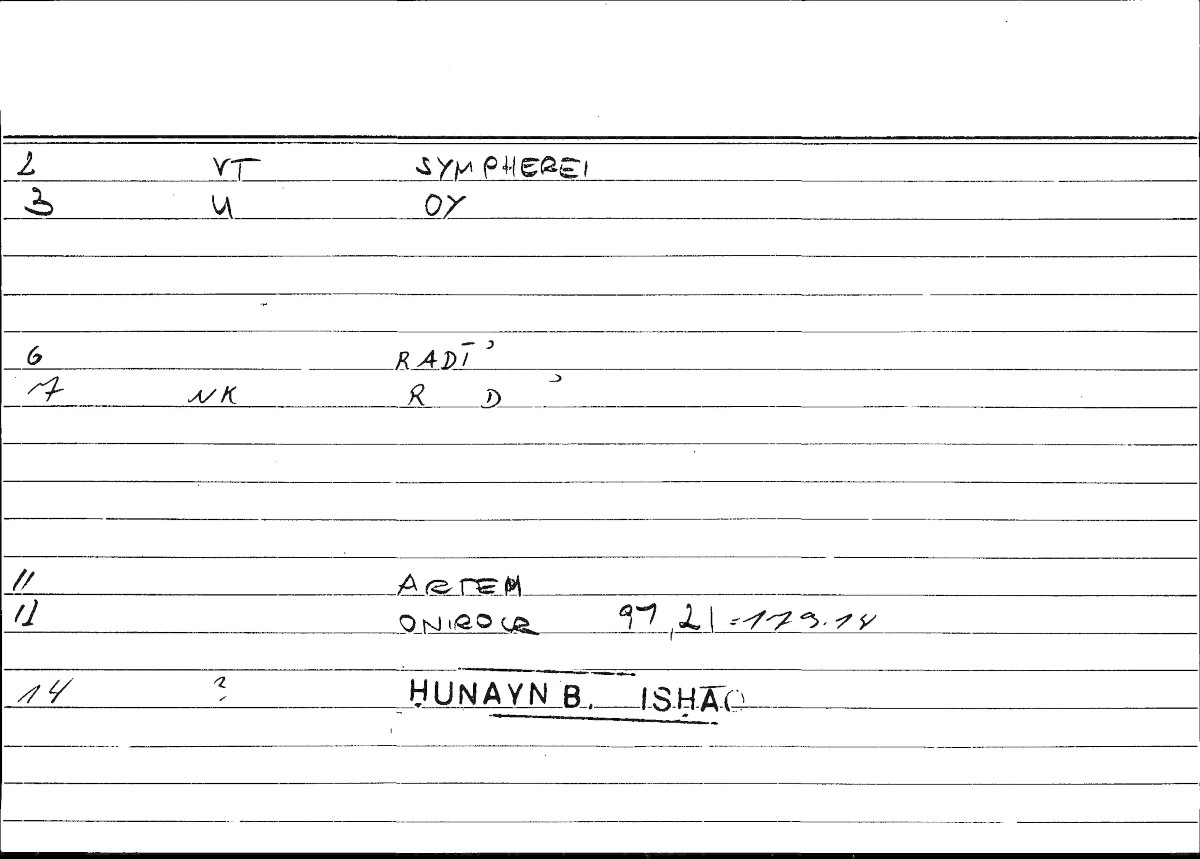 2 VT SYMPHEREI
3 U OY
6 RADĪʾ
7 NK R D ʾ
11 ARTEM
12 ONIROCR 97,21=179.14
14 ? ḤUNAYN B. ISḤĀQ